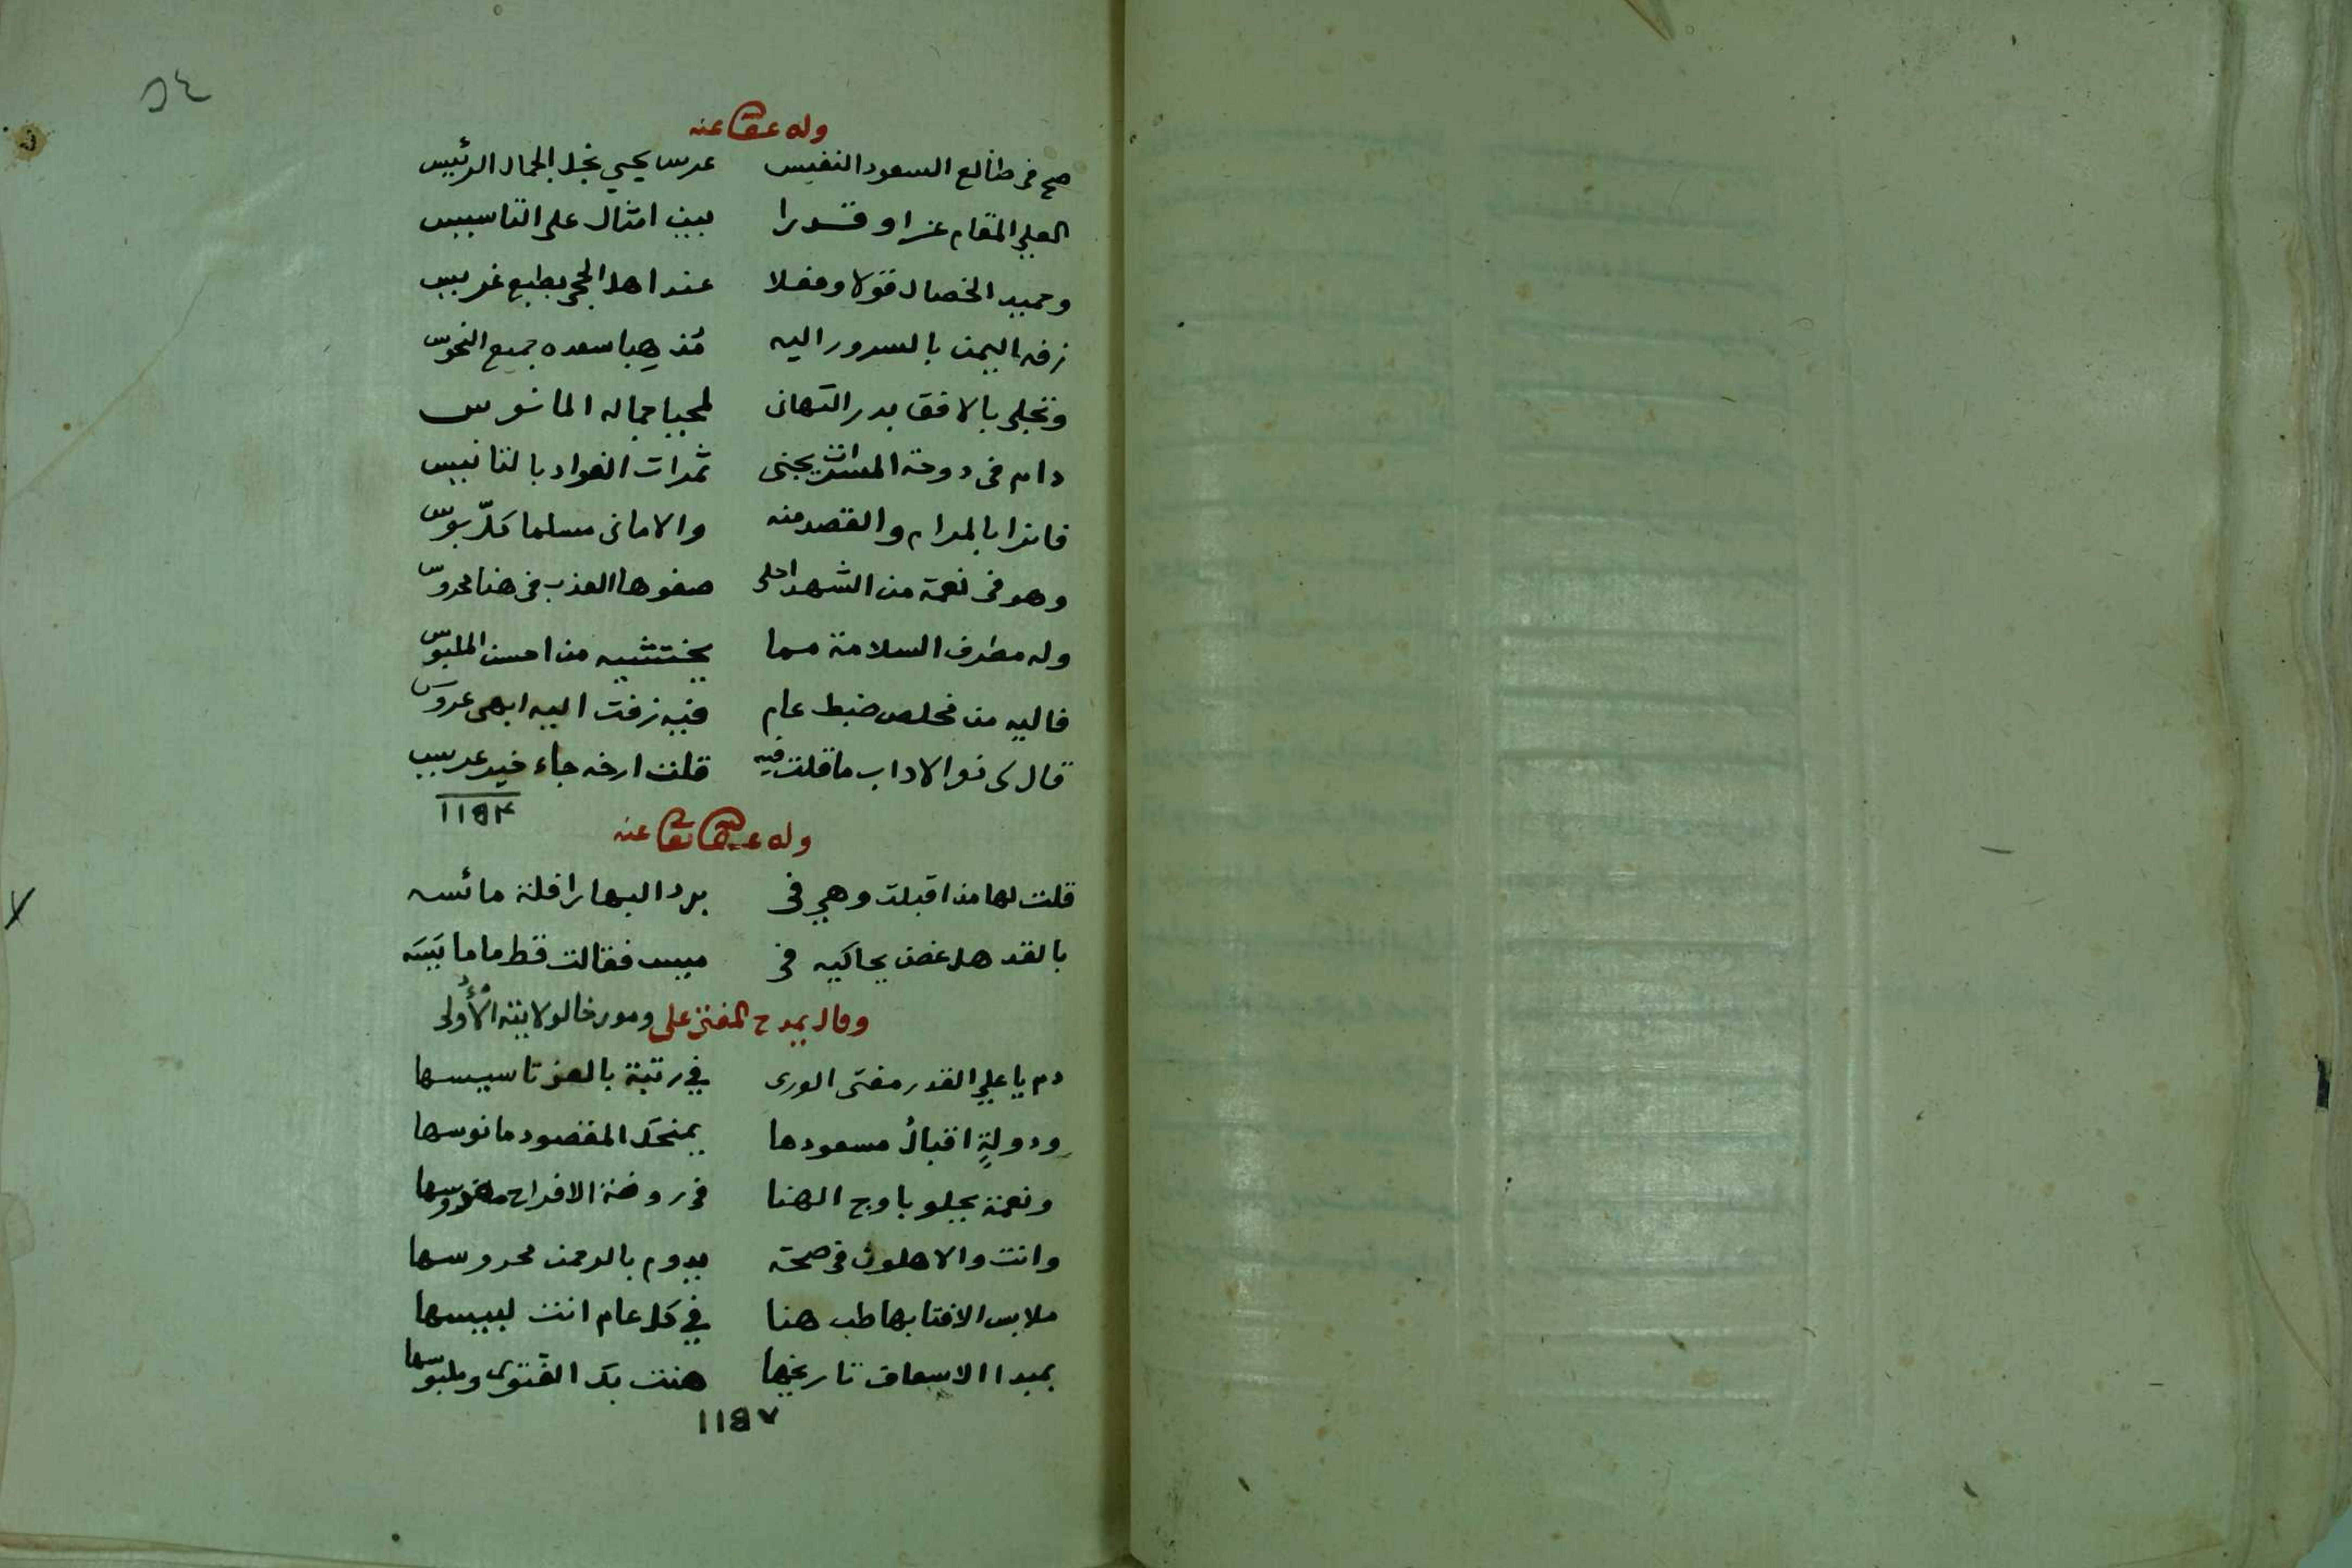 ٥٤
وله عفا عنه
صح فى طالع السعود النفيس عرس يحيى نجل الجمال الرئيس
العلى المقام عزا وقدرا بيت امثال على التاسيس
وحميد الخصال قولا وفعلا عند اهل الحجى بطبع غريس
زفه اليمن بالسرور اليه مُذهبا سعده جميع النحوس
وتجلى بالافق بدر التهانى لمحيا جماله المانوس
دام فى دوحة المسرات يجنى ثمرات الفواد بالتانيس
فائزا بالمرام والقصد منه والامانى مسلما كلّ بوس
وهو فى نعمة من الشهد احلى صفوها العذب فى هنا محروس
وله مطرف السلامة مما يختشيه من احسن الملبوس
فاليه من مخلص ضبط عام فيه زفت اليه ابهى عروس
قال لى ذو الاداب ما قلت فيه قلت ارخه جاء خير عريس
١١٥٣
وله عفا الله تعا عنه
قلت لها مذ اقبلت وهى فى برد البها رافلة مائسه
بالقد هل غصن يحاكيه فى ميس فقالت قط ما مايَسَه
وقال يمدح المفتى على ومورخا لولايته الأُولى
دم يا على القدر مفتى الورى فى رتبة بالعز تاسيسها
ودولةٍ اقبالُ مسعودها يمنحك المقصود مانوسها
ونعمة يجلو باوج الهنا فى روضة الافراح مغروسها
وانت والاهلون فى صحة يدوم بالرحمن محروسها
ملابس الافتا بها طب هنا فى كل عام انت لبيسها
بمبدا الاسعاف تاريخها هنئت بك الفتوى وملبوسها
١١٥٧